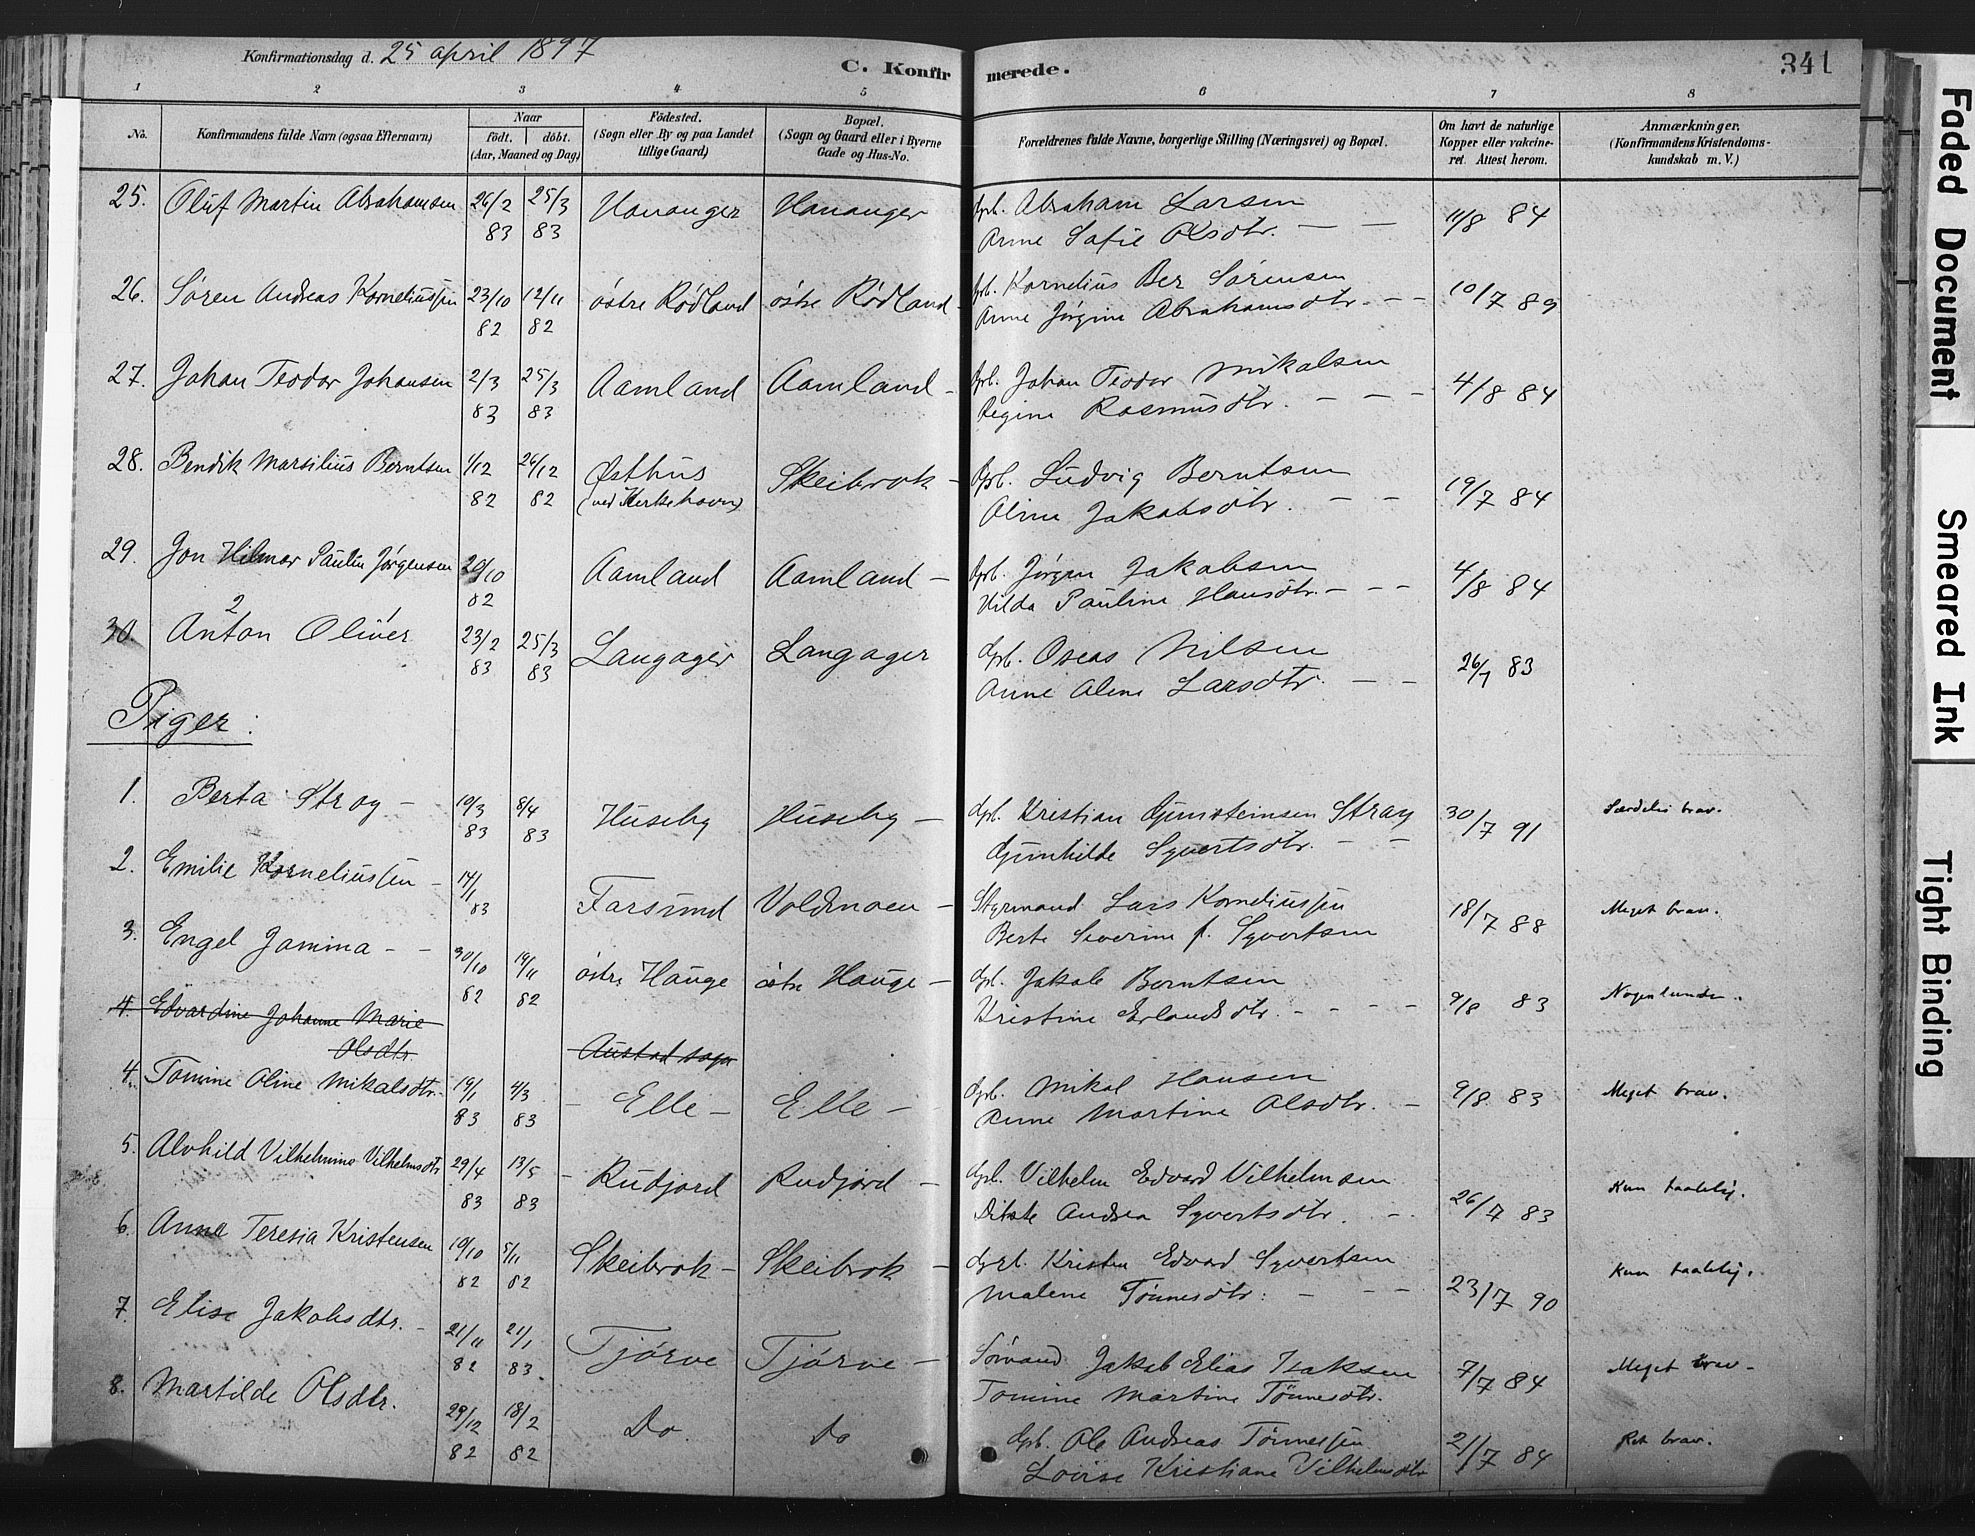 Konfirmationsdag d. 25 april 1897
C. Konfirmerede.
341
1 2 3 4 5 6 7 8
No.
Konfirmandens fulde Navn (ogsaa Efternavn)
Naar
født. døbt.
(Aar, Maaned og Dag)
Fødested.
(Sogn eller By og paa Landet
tillige Gaard)
Bopæl.
(Sogn og Gaard eller i Byerne
Gade og Hus-No.
Forældrenes fulde Navne, borgerlige Stilling (Næringsvei) og Bopæl.
Om havt de naturlige
Kopper eller vakcine-
ret. Attest herom.
Anmærkninger.
(Konfirmandens Kristendoms-
kundskab m. V.)
25. Oluf Martin Abrahamsen 26/2 83 25/3 83 Hananger Hananger Gpb. Abraham Larsen 11/8 84
Anne Sofie Olsdtr. — —
26. Søren Andreas Korneliussen 23/10 82 12/11 82 østre Rødland østre Rødland - Gpb. Kornelius Ber Sørensen 10/7 89
Anne Jørgine Abrahamsdtr. - -
27. Johan Teodor Johansen 2/3 83 25/3 83 Aamland Aamland - Gpb. Johan Teodor Mikalsen 4/8 84
Regine Rasmusdtr. — — —
28. Bendik Marsilius Berntsen 1/12 82 26/12 82 Østhus Skeibrok - Gpb. Ludvig Berntsen 19/7 84
Aline Jakobsdtr. — —
29. Jon Hilmar Paulin Jørgensen 20/10 82 Aamland Aamland - Gpb. Jørgen Jakobsen 4/8 84
Hilda Pauline Hansdtr. - - -
30. Anton Oliver 23/2 83 25/3 83 Langager Langager Gpb. Oseas Nilsen 26/7 83
Anne Aline Larsdtr. — —
Piger:
1. Berta Stray - 10/3 83 8/4 83 Huseby Huseby - Gpb. Kristian Gunsteinsen Stray 30/7 91 Særdeles brav.
Gunhilde Syvertsdtr. - -
2. Emilie Korneliussen - 14/1 83 Farsund Voldmoen - Styrmand Lars Korneliussen 18/7 88 Meget brav.
Berte Severine f. Syvertsen
3. Engel Jamina - - 30/10 82 19/11 82 østre Hauge østre Hauge - Gpb. Jakob Berntsen 9/8 83 Nogenlunde.
Kristine Erlandsdtr. - - - -
4. Edvardine Johanne Marie
Olsdtr. Austad sogn
4. Tomine Oline Mikalsdtr. 19/1 83 4/3 83 - Elle - Elle - Gpb. Mikal Hansen 9/8 83 Meget brav.
Anne Martine Olsdtr. -
5. Alvhild Vilhelmine Vilhelmsdtr 29/4 83 13/5 83 - Rudjord Rudjord - Gpb. Vilhelm Edvard Vilhelmsen 26/7 83 Kun taalelig.
Andrea Syvertsdtr. -
6. Anna Teresia Kristensen 19/10 82 5/11 82 Skeibrok - Skeibrok - Gpb. Kristen Edvard Syvertsen 23/7 90 Kun taalelig.
Malene Tønnesdtr. - - -
7. Elise Jakobsdtr. - 21/11 82 21/1 83 Tjørve Tjørve - Sømand Jakob Elias Isaksen 7/7 84 Meget brav -
Tomine Martine Tønnesdtr.
8. Martilde Olsdtr. 29/12 82 18/2 82 Do Do Gpb. Ole Andreas Tønnessen 21/7 84 Ret brav.
Lovise Kristiane Vilhelmsdtr
Faded Document
Smeared Ink
Tight Binding